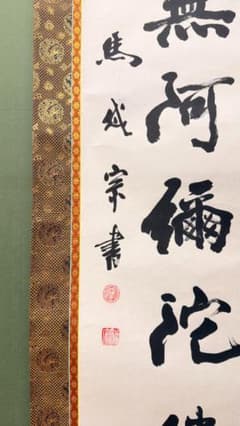 無阿彌陀
馬成宗書